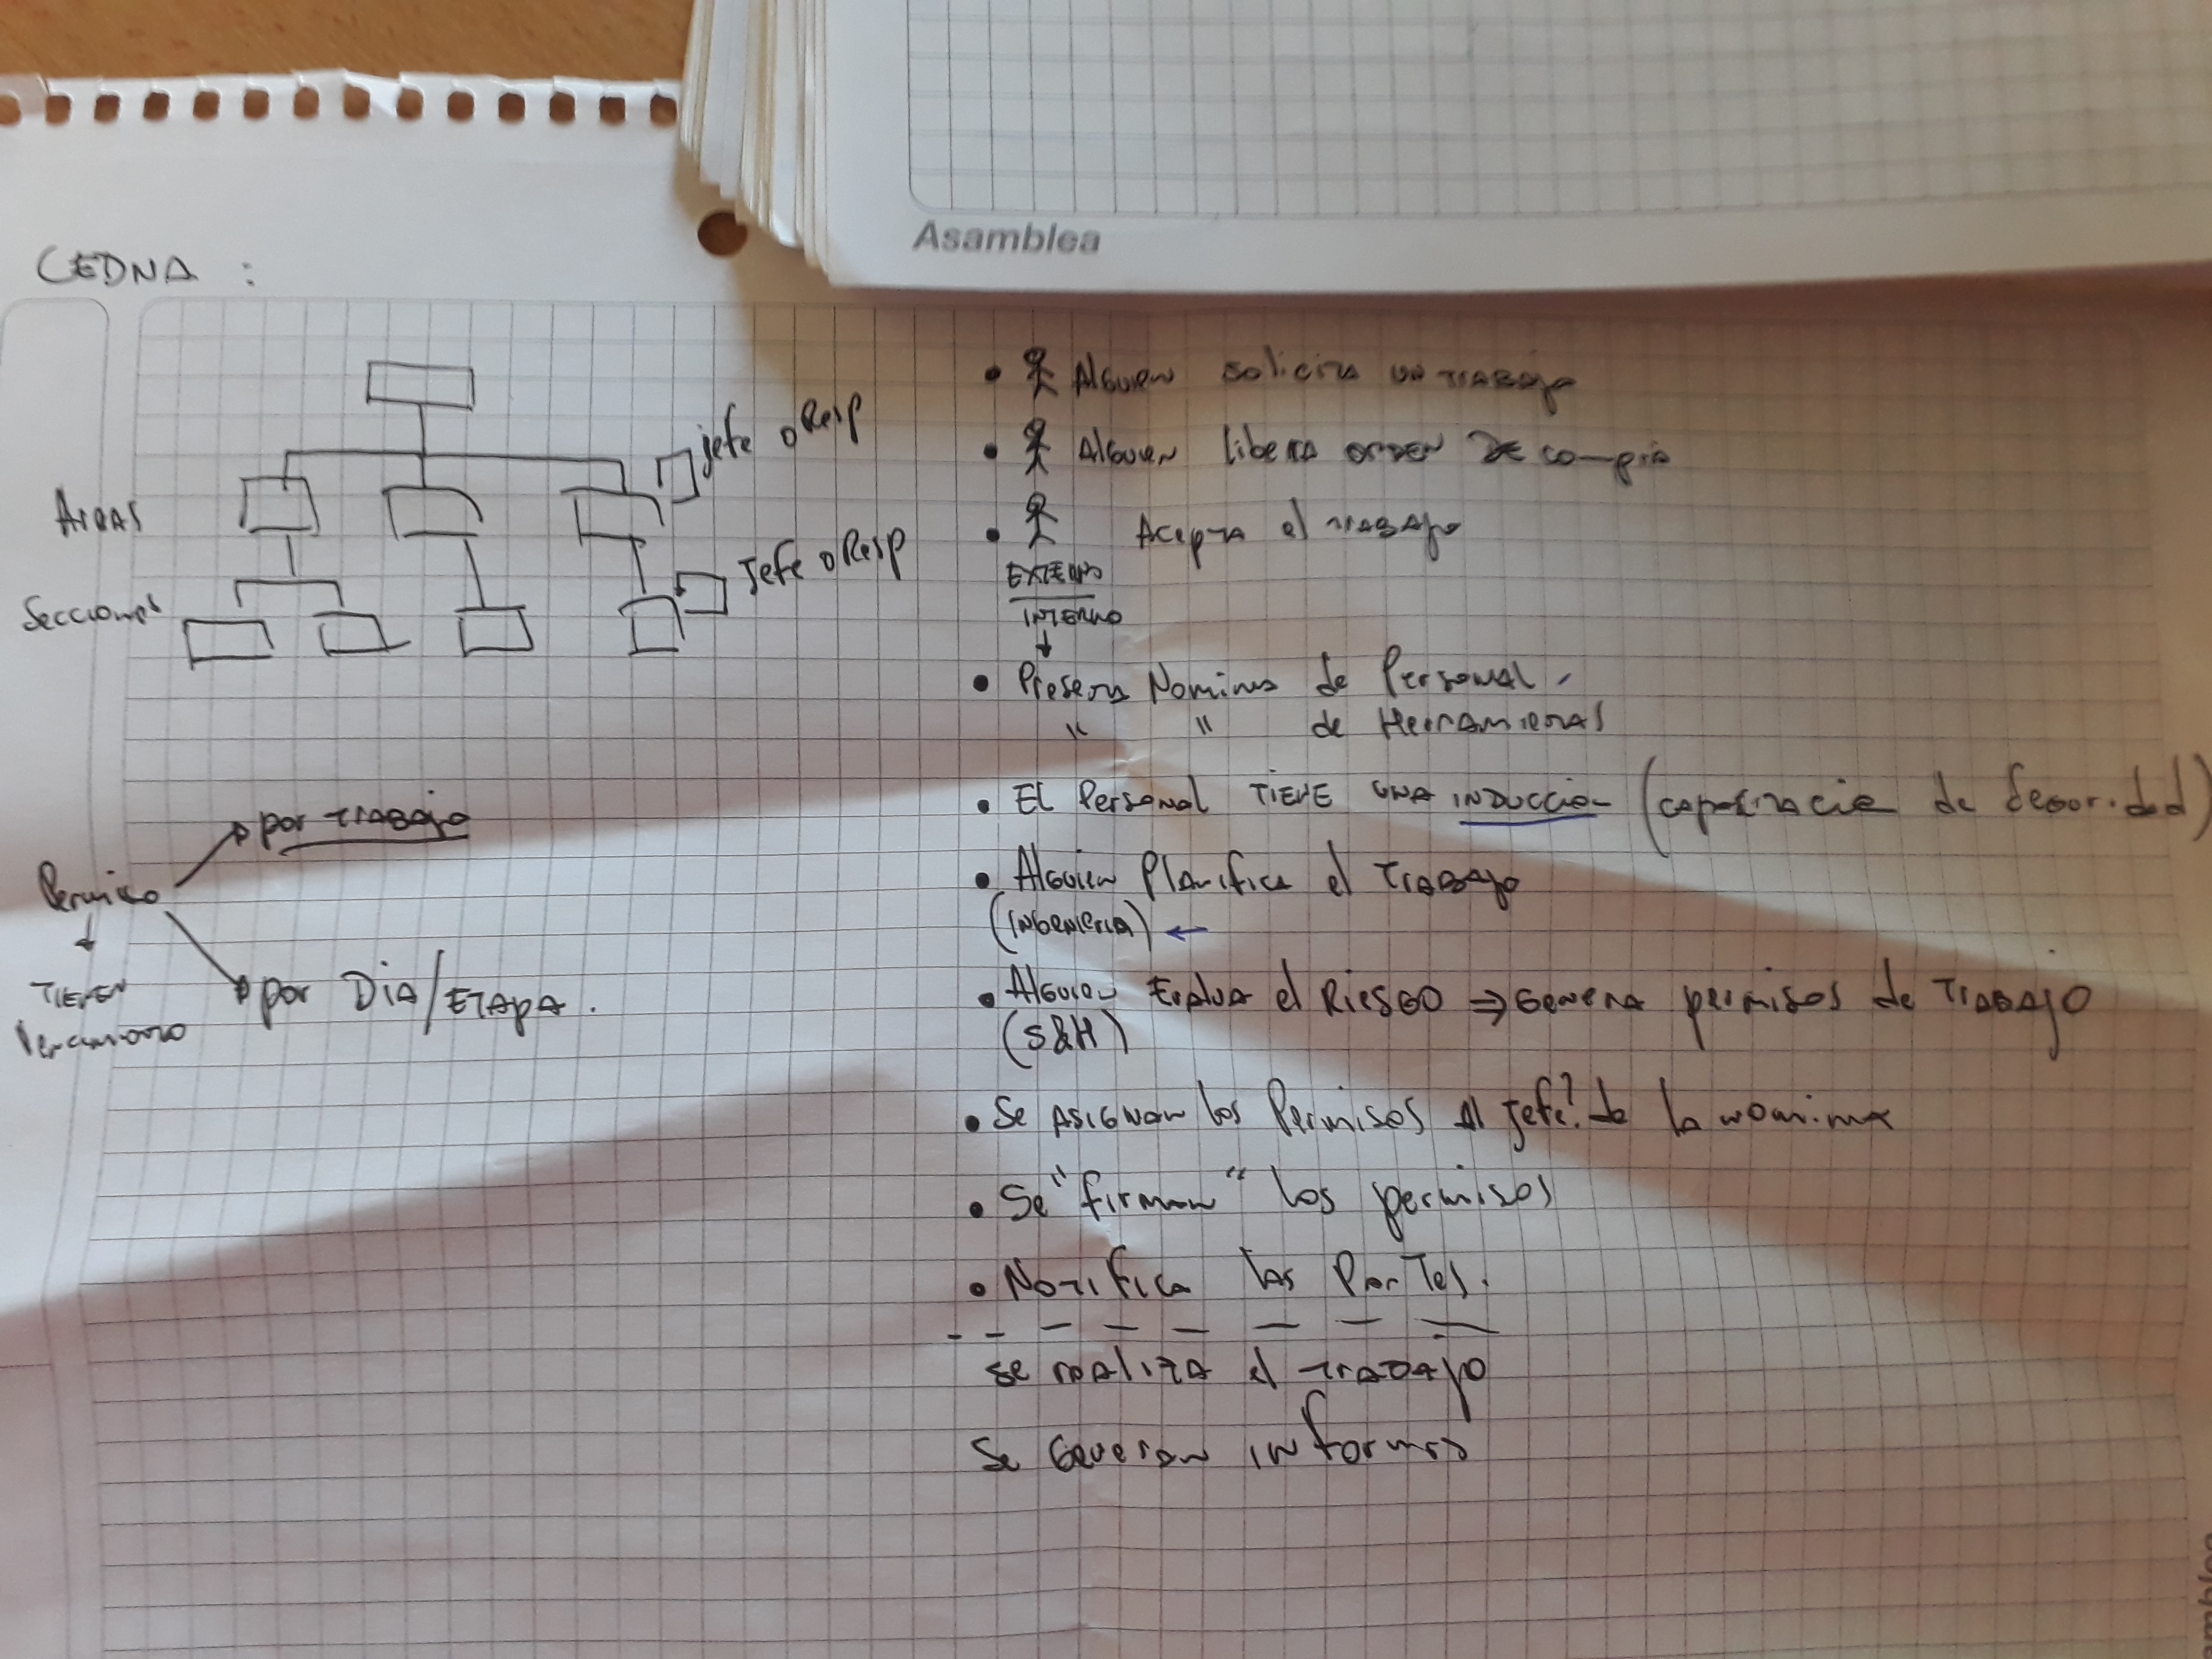 Asamblea
CEDNA :
jefe o Resp
Areas
Jefe o Resp
Secciones
por TRABAJO
Permiso
TIENEN
Vencimiento
por DIA/ETAPA.
• Alguien solicita un TRABAJO
• Alguien libera ORDEN DE compra
• Acepta el TRABAJO
EXTERNO
INTERNO
• Presenta Nomina de Personal
" " de Herramientas
• El Personal TIENE UNA INDUCCION (capacitacion de Seguridad)
• Alguien Planifica el TRABAJO
(INGENIERIA) ←
• Alguien Evalua el RIESGO ⇒ GENERA permisos de TRABAJO
(S&H)
• Se ASIGNAN los Permisos Al jefe? de la nomina
• Se "firman" los permisos
• Notifica las Partes.
se realiza el TRABAJO
Se Generan informes